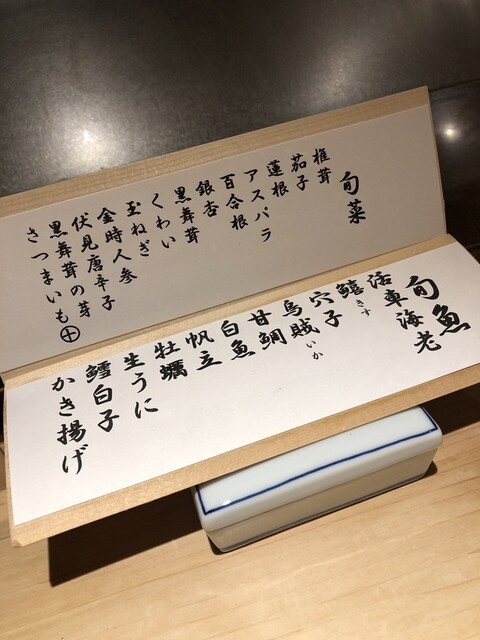 旬菜
椎茸
茄子
蓮根
アスパラ
百合根
銀杏
黒舞茸
くわい
玉ねぎ
金時人参
伏見唐辛子
黒舞茸の芽
さつまいも㊉
旬魚
活車海老
鱚きす
穴子
烏賊いか
甘鯛
白魚
帆立
牡蠣
生うに
鱈白子
かき揚げ